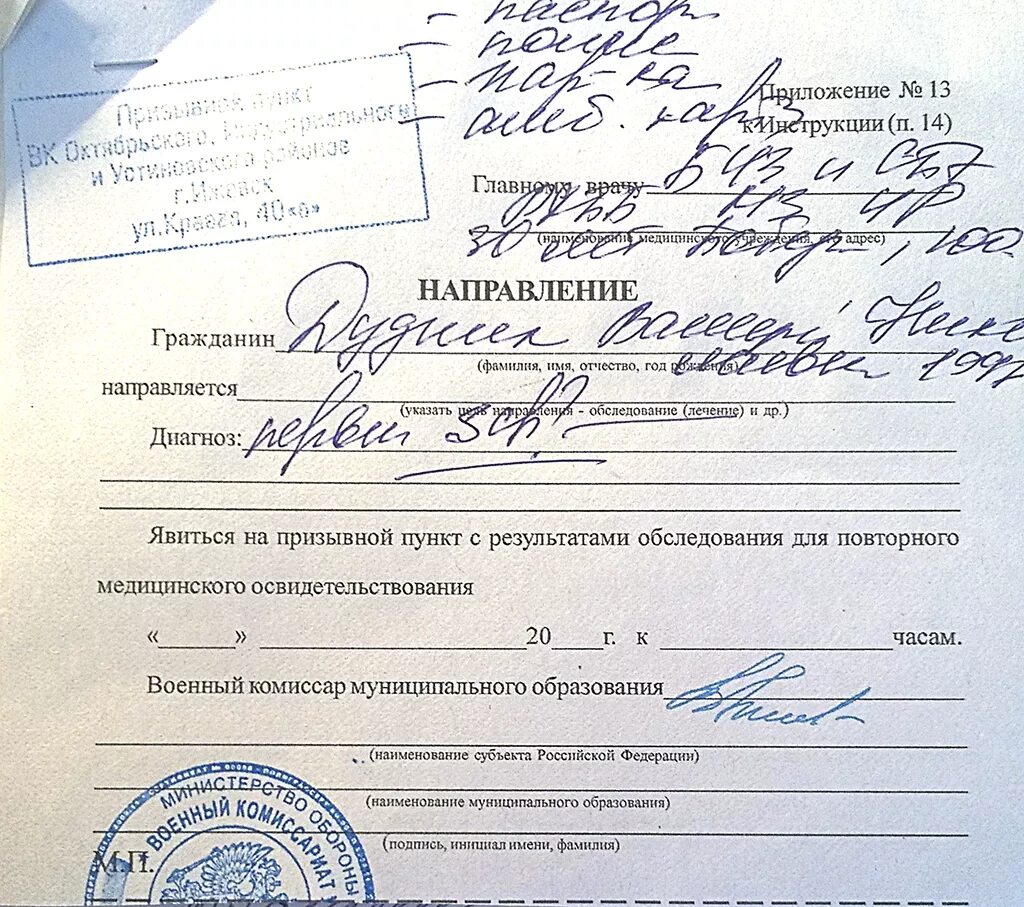 - паспорт
- полис
- амб. карта
Призывной пункт
ВК Октябрьского, Индустриального
и Устиновского районов
г.Ижевск
ул.Краева, 40«а»
Приложение № 13
к Инструкции (п. 14)
Главному врачу БУЗ и СПЭ
РКПБ МЗ УР
30 лет Победы, 100
(наименование медицинского учреждения, его адрес)
НАПРАВЛЕНИЕ
Гражданин Валерий
(фамилия, имя, отчество, год рождения)
направляется
(указать цель направления - обследование (лечение) и др.)
Диагноз:
Явиться на призывной пункт с результатами обследования для повторного
медицинского освидетельствования
«____» ________ 20___г. к ________ часам.
Военный комиссар муниципального образования
(наименование субъекта Российской Федерации)
(наименование муниципального образования)
(подпись, инициал имени, фамилия)
М.П.
МИНИСТЕРСТВО ОБОРОНЫ
ВОЕННЫЙ КОМИССАРИАТ